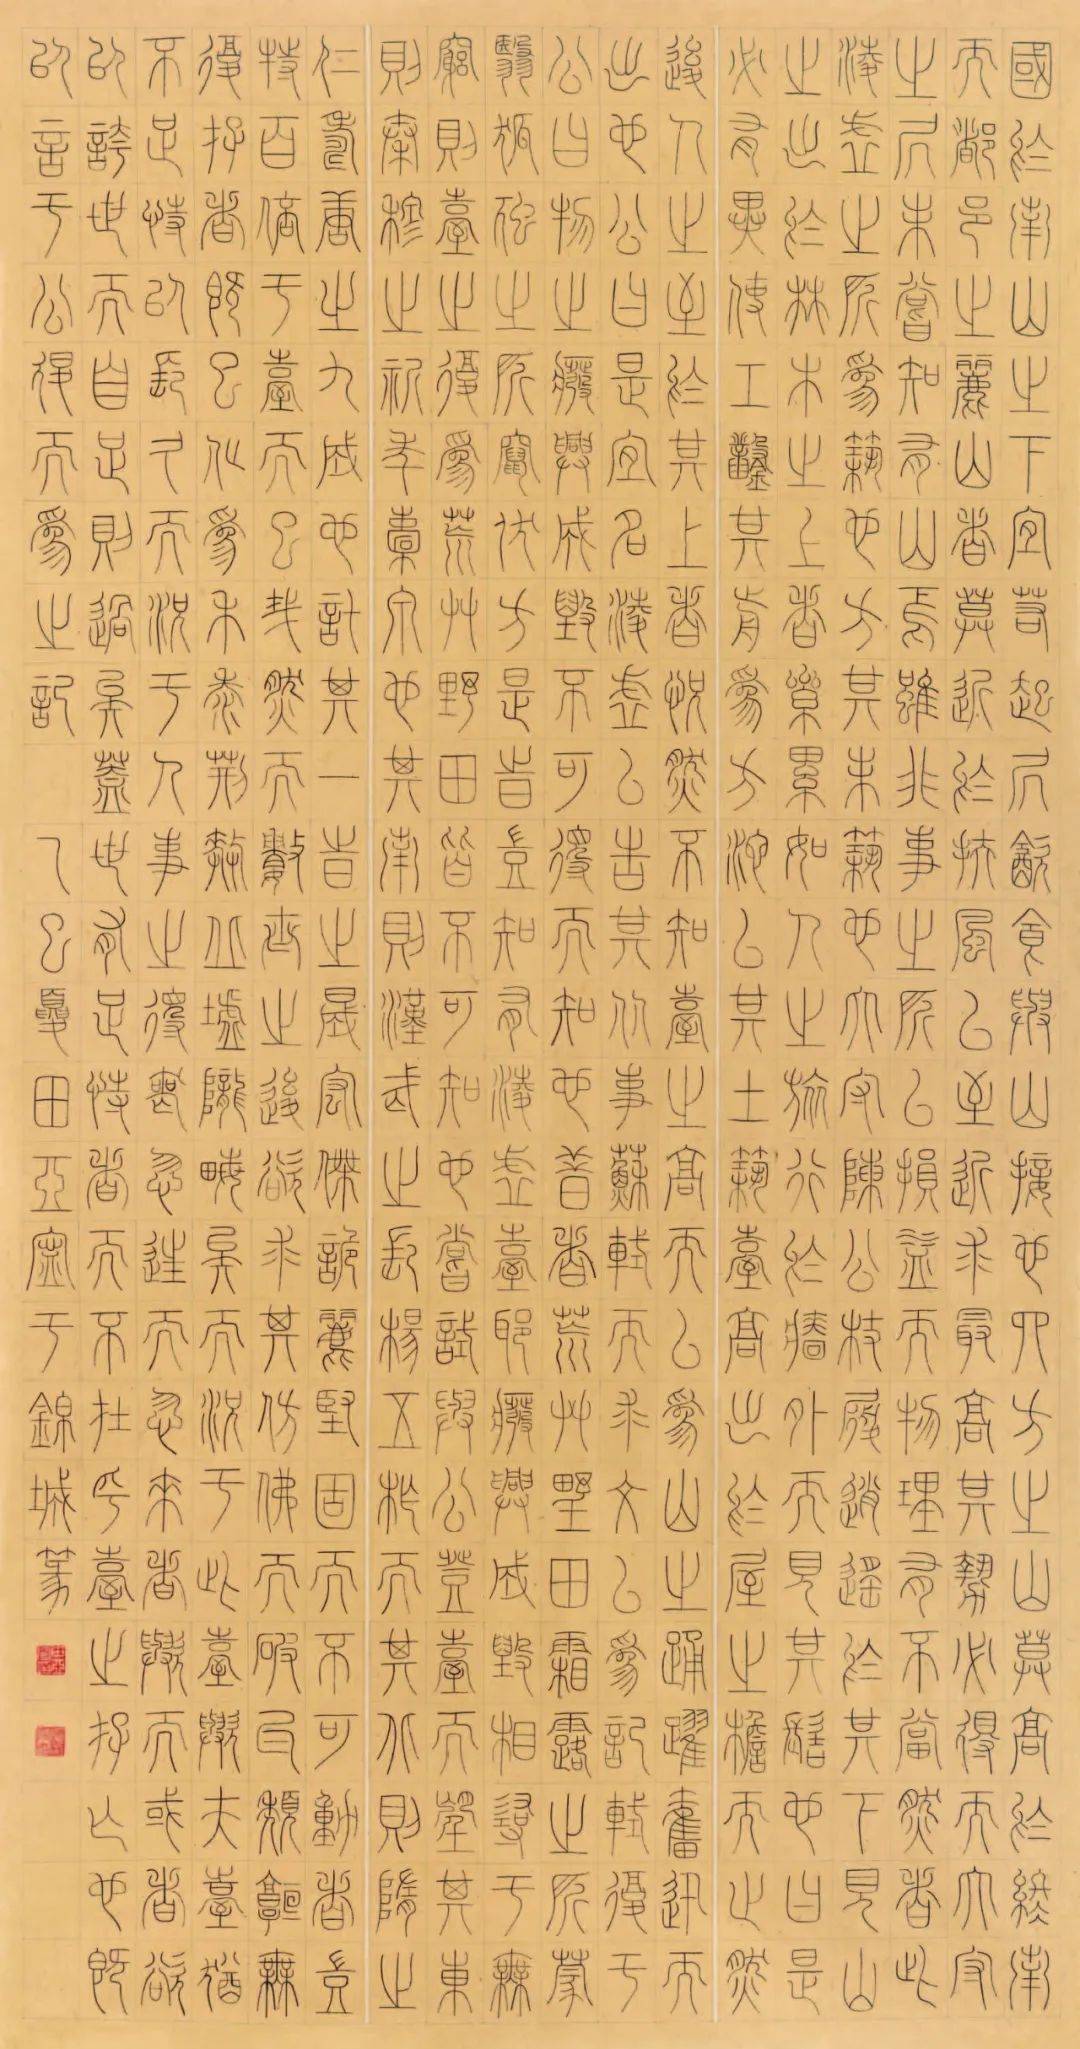 國於南山之下宜若起居飲食與山接也四方之山莫高於終南
而都邑之麗山者莫近於扶風以至近求最高其勢必得而太守
之居未嘗知有山焉雖非事之所以損益而物理有不當然者此
凌虛之所為築也方其未築也太守陳公杖履逍遙於其下見山
之出於林木之上者纍累如人之旅行於牆外而見其髻也曰是
必有異使工鑿其前為方池以其土築臺高出於屋之檐而止然
後人之至於其上者恍然不知臺之高而以為山之踊躍奮迅而
出也公曰是宜名凌虛以告其從事蘇軾而求文以為記軾復于
公曰物之廢興成毀不可得而知也昔者荒艸野田霜露之所蒙
翳狐虺之所竄伏方是時豈知有凌虛臺耶廢興成毀相尋于無
窮則臺之復為荒艸野田皆不可知也嘗試與公登臺而望其東
則秦穆之祈年橐泉也其南則漢武之長楊五柞而其北則隋之
仁壽唐之九成也計其一時之盛宏傑詭麗堅固而不可動者豈
特百倍于臺而已哉然而數世之後欲求其仿佛而破瓦頹垣無
復存者既已化為禾黍荊棘丘墟隴畝矣而況于此臺歟夫臺猶
不足恃以長久而況于人事之得喪忽往而忽來者歟而或者欲
以誇世而自足則過矣蓋世有足恃者而不在乎臺之存亡也既
以言于公退而為之記 乙巳夏田亞于錦城篆